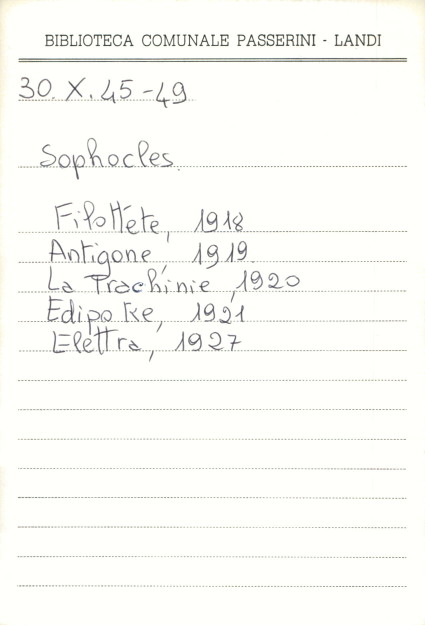 BIBLIOTECA COMUNALE PASSERINI - LANDI
30. X. 45-49
Sophocles.
Filottete, 1918
Antigone, 1919.
La Trachinie, 1920
Edipo Re, 1921
Elettra, 1927